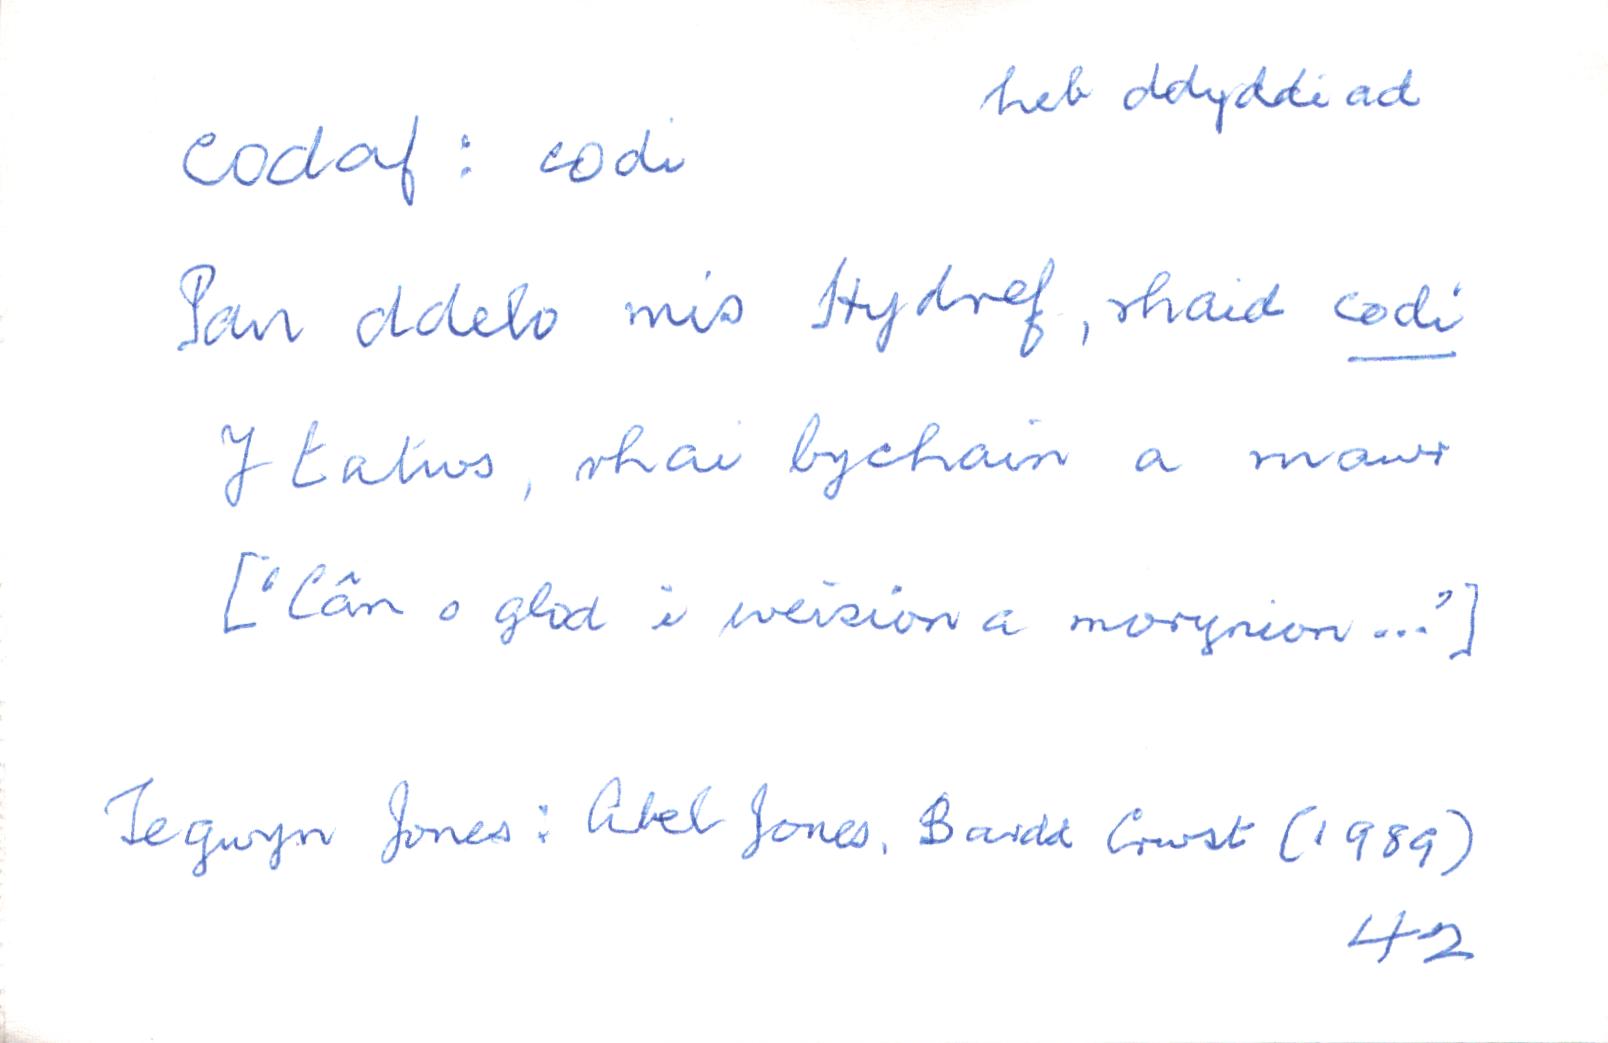 heb ddyddiad
codaf : codi
Pan ddelo mis Hydref, rhaid codi
Y tatws, rhai bychain a mawr
['Cân o glod i weision a morynion ...']
Tegwyn Jones : Abel Jones, Bardd Crwst (1989)
42